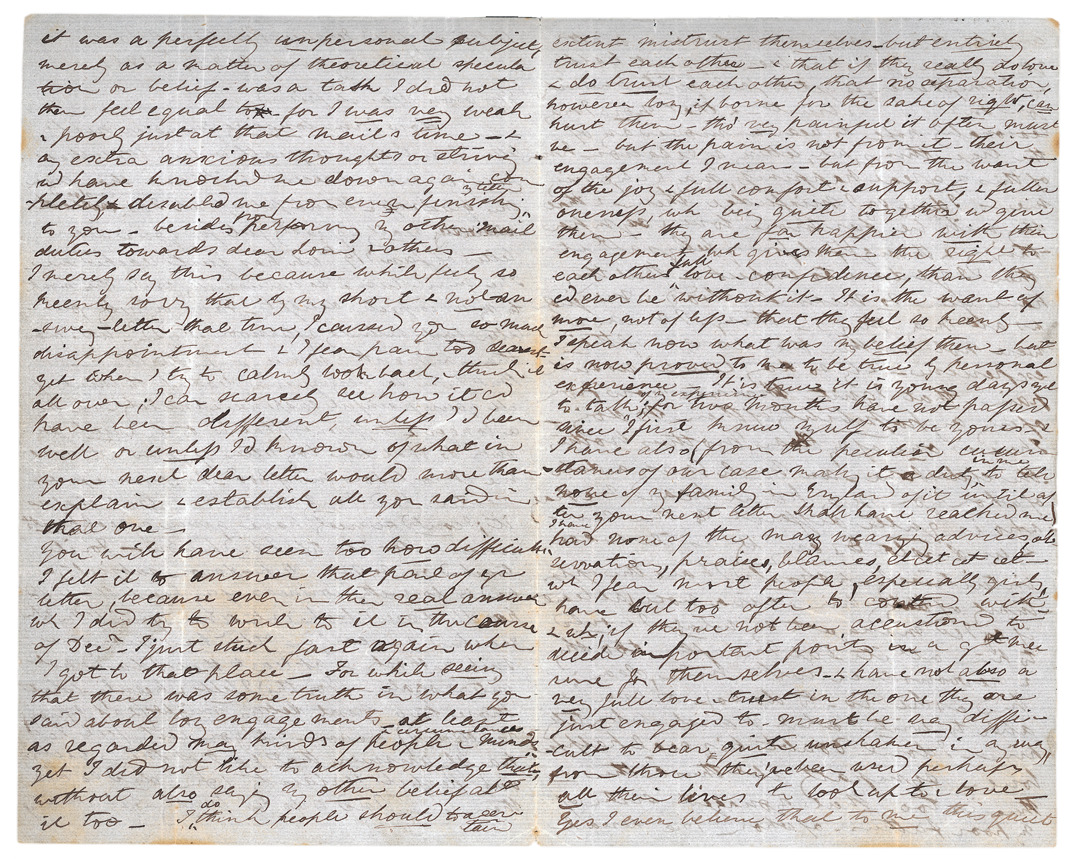 it was a perfectly unpersonal subject,
merely as a matter of theoretical specula
tion or belief - was a task I did not
then feel equal to for I was very weak
& poorly just at that mail's time - &
any extra anxious thoughts or striving
wd have knocked me down again com
-pletely & disabled me from even finishing my letter
to you - besides performing my other "mail"
duties towards dear & others -
I merely say this because while fully so
keenly sorry that by my short & not an
-swery - letter that time, I caused you so much
disappointment & I fear pain too dearest -
yet when I try to calmly look back, & think it
all over, I can scarcely see how it cd
have been different, unless I'd been
well or unless I'd known of what in
your next dear letter would more than
explain & establish all you said in
that one -
You will have seen too how difficult
I felt it to answer that part of yr
letter, because even in the real answer
wh I did try to write to it in the course
of Decr - I just stuck fast again when
I got to that place - For while seeing
that there was some truth in what you
said about long engagements - at least
as regarded many kinds of people & circumstances & minds
yet I did not like to acknowledge that
without also saying my other belief abt
it too - I do think people should to a cer
tain
extent mistrust themselves - but entirely
trust each other - & that if they really do love
& do trust each other, that no separation,
however long, if borne for the sake of right, can
hurt them - tho' very painful it often must
be - but the pain is not from it - their
engagement I mean - but from the want
of the joy & full comfort & support, & fuller
oneness, wh being quite together wd give
them - they are far happier with their
engagement, wh gives them the right to
each other's full love & confidence, than they
cd ever be without it - It is the want of
more, not of less - that they feel so keenly -
I speak now what was my belief then - but
is now proved to me to be true by personal
experience - It is true it is young days yet
to talk of experience, for two months have not passed
since I first knew myself to be yours &
I have also (from the peculiar circum
-stances of our case making it a duty in me, to tell
none of my family in England of it until af
ter your next letter shall have reached me)
I have had none of the many wearing advices, ob
servations, praises, blames, &cet &cet cet -
wh I fear most people, especially girls,
have but too often to contend with -
& wh, if they've not been accustomed to
decide important points in a great mea
sure for themselves - & have not also a
very full love & trust in the one they are
just engaged to - must be very diffi-
-cult to bear quite unshaken in any way
from those they've been used perhaps
all their lives to look up to & love -
Yes I even believe that to me this quiet